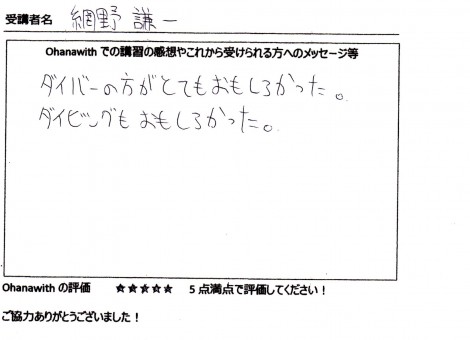 受講者名 網野 謙一
Ohanawith での講習の感想やこれから受けられる方へのメッセージ等
ダイバーの方がとてもおもしろかった。
ダイビングもおもしろかった。
Ohanawith の評価 ★★★★★ 5点満点で評価してください！
ご協力ありがとうございました！